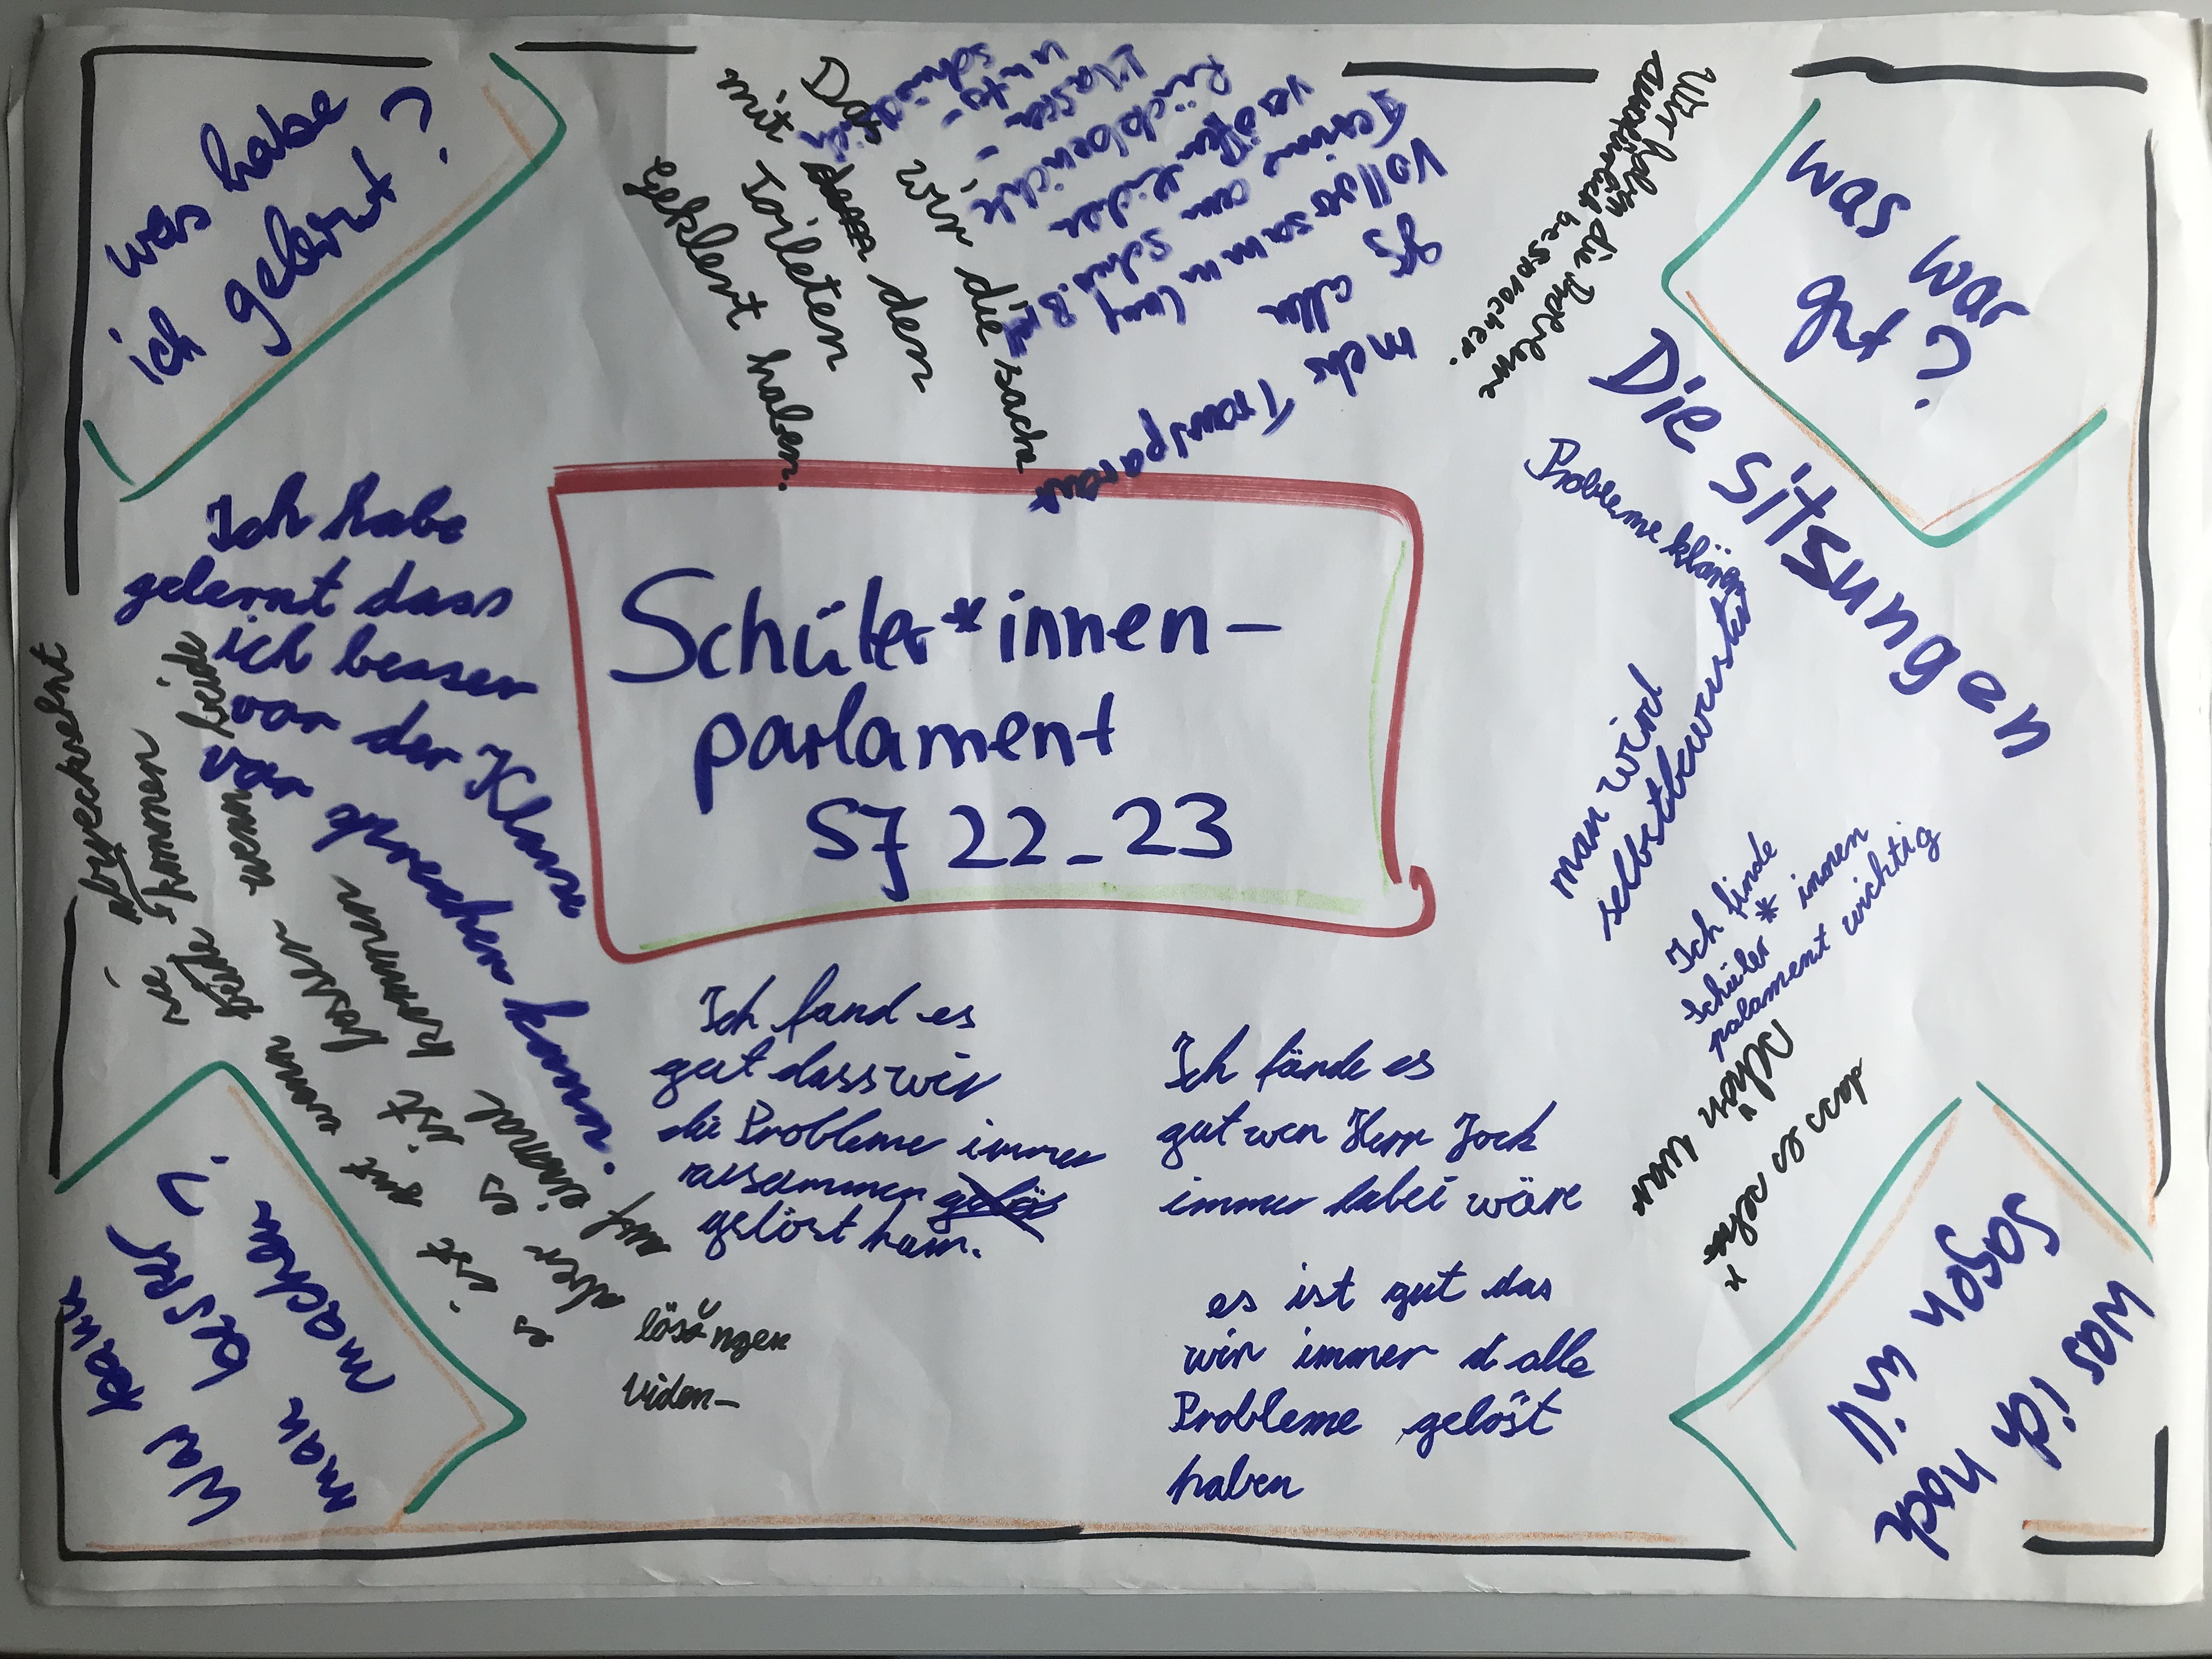 was habe
ich gelernt?
Das wir die sache
mit den
Toileten
geklert haben.
mehr Transparent
Wir haben die Probleme
ausfürlich besprochen.
was war
gut?
Die sitsungen
Probleme klären
man wird
selbstbewusster
Ich finde
Schüler*innen
palament wichtig
dass es sehr
schön war
Ich habe
gelernt dass
ich besser
vor der Klasse
vor sprechen kann.
Schüler*innen-
parlament
SJ 22_23
Ich fand es
gut dass wir
die Probleme immer
zusammen
gelöst ham.
Ich fände es
gut wen Herr Jock
immer dabei wäre
es ist gut das
wir immer alle
Probleme gelöst
haben
es ist gut wenn
beide kommen
aber es ist besser wenn beide
auf einmal kommen
lösungen
viden-
Was kann
man besser
machen?
Was ich
noch
sagen will